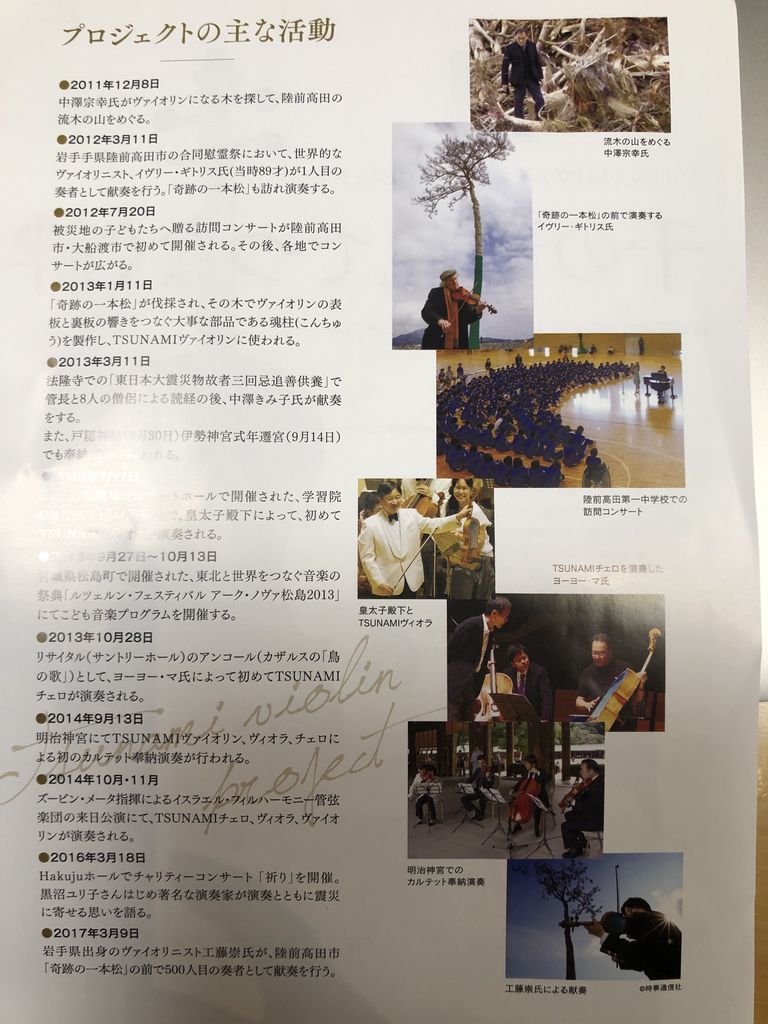 プロジェクトの主な活動
●2011年12月8日
中澤宗幸氏がヴァイオリンになる木を探して、陸前高田の
流木の山をめぐる。
●2012年3月11日
岩手手県陸前高田市の合同慰霊祭において、世界的な
ヴァイオリニスト、イヴリー・ギトリス氏(当時89才)が1人目の
奏者として献奏を行う。「奇跡の一本松」も訪れ演奏する。
●2012年7月20日
被災地の子どもたちへ贈る訪問コンサートが陸前高田
市・大船渡市で初めて開催される。その後、各地でコン
サートが広がる。
●2013年1月11日
「奇跡の一本松」が伐採され、その木でヴァイオリンの表
板と裏板の響きをつなぐ大事な部品である魂柱(こんちゅ
う)を製作し、TSUNAMIヴァイオリンに使われる。
●2013年3月11日
法隆寺での「東日本大震災物故者三回忌追善供養」で
管長と8人の僧侶による読経の後、中澤きみ子氏が献奏
をする。
また、戸隠神社(月30日)伊勢神宮式年遷宮(9月14日)
でも奉納
●2013年7月7日
ートホールで開催された、学習院
で、皇太子殿下によって、初めて
TSUNA 演奏される。
●2013年9月27日〜10月13日
宮城県松島町で開催された、東北と世界をつなぐ音楽の
祭典「ルツェルン・フェスティバル アーク・ノヴァ松島2013」
にてこども音楽プログラムを開催する。
●2013年10月28日
リサイタル(サントリーホール)のアンコール(カザルスの「鳥
の歌」)として、ヨーヨー・マ氏によって初めてTSUNAMI
チェロが演奏される。
●2014年9月13日
明治神宮にてTSUNAMIヴァイオリン、ヴィオラ、チェロに
よる初のカルテット奉納演奏が行われる。
●2014年10月・11月
ズービン・メータ指揮によるイスラエル・フィルハーモニー管弦
楽団の来日公演にて、TSUNAMIチェロ、ヴィオラ、ヴァイオ
リンが演奏される。
●2016年3月18日
Hakujuホールでチャリティーコンサート「祈り」を開催。
黒沼ユリ子さんはじめ著名な演奏家が演奏とともに震災
に寄せる思いを語る。
●2017年3月9日
岩手県出身のヴァイオリニスト工藤崇氏が、陸前高田市
「奇跡の一本松」の前で500人目の奏者として献奏を行う。
Tsunami violin
project
流木の山をめぐる
中澤宗幸氏
「奇跡の一本松」の前で演奏する
イヴリー・ギトリス氏
陸前高田第一中学校での
訪問コンサート
皇太子殿下と
TSUNAMIヴィオラ
TSUNAMIチェロを演奏した
ヨーヨー・マ氏
明治神宮での
カルテット奉納演奏
工藤崇氏による献奏
©時事通信社